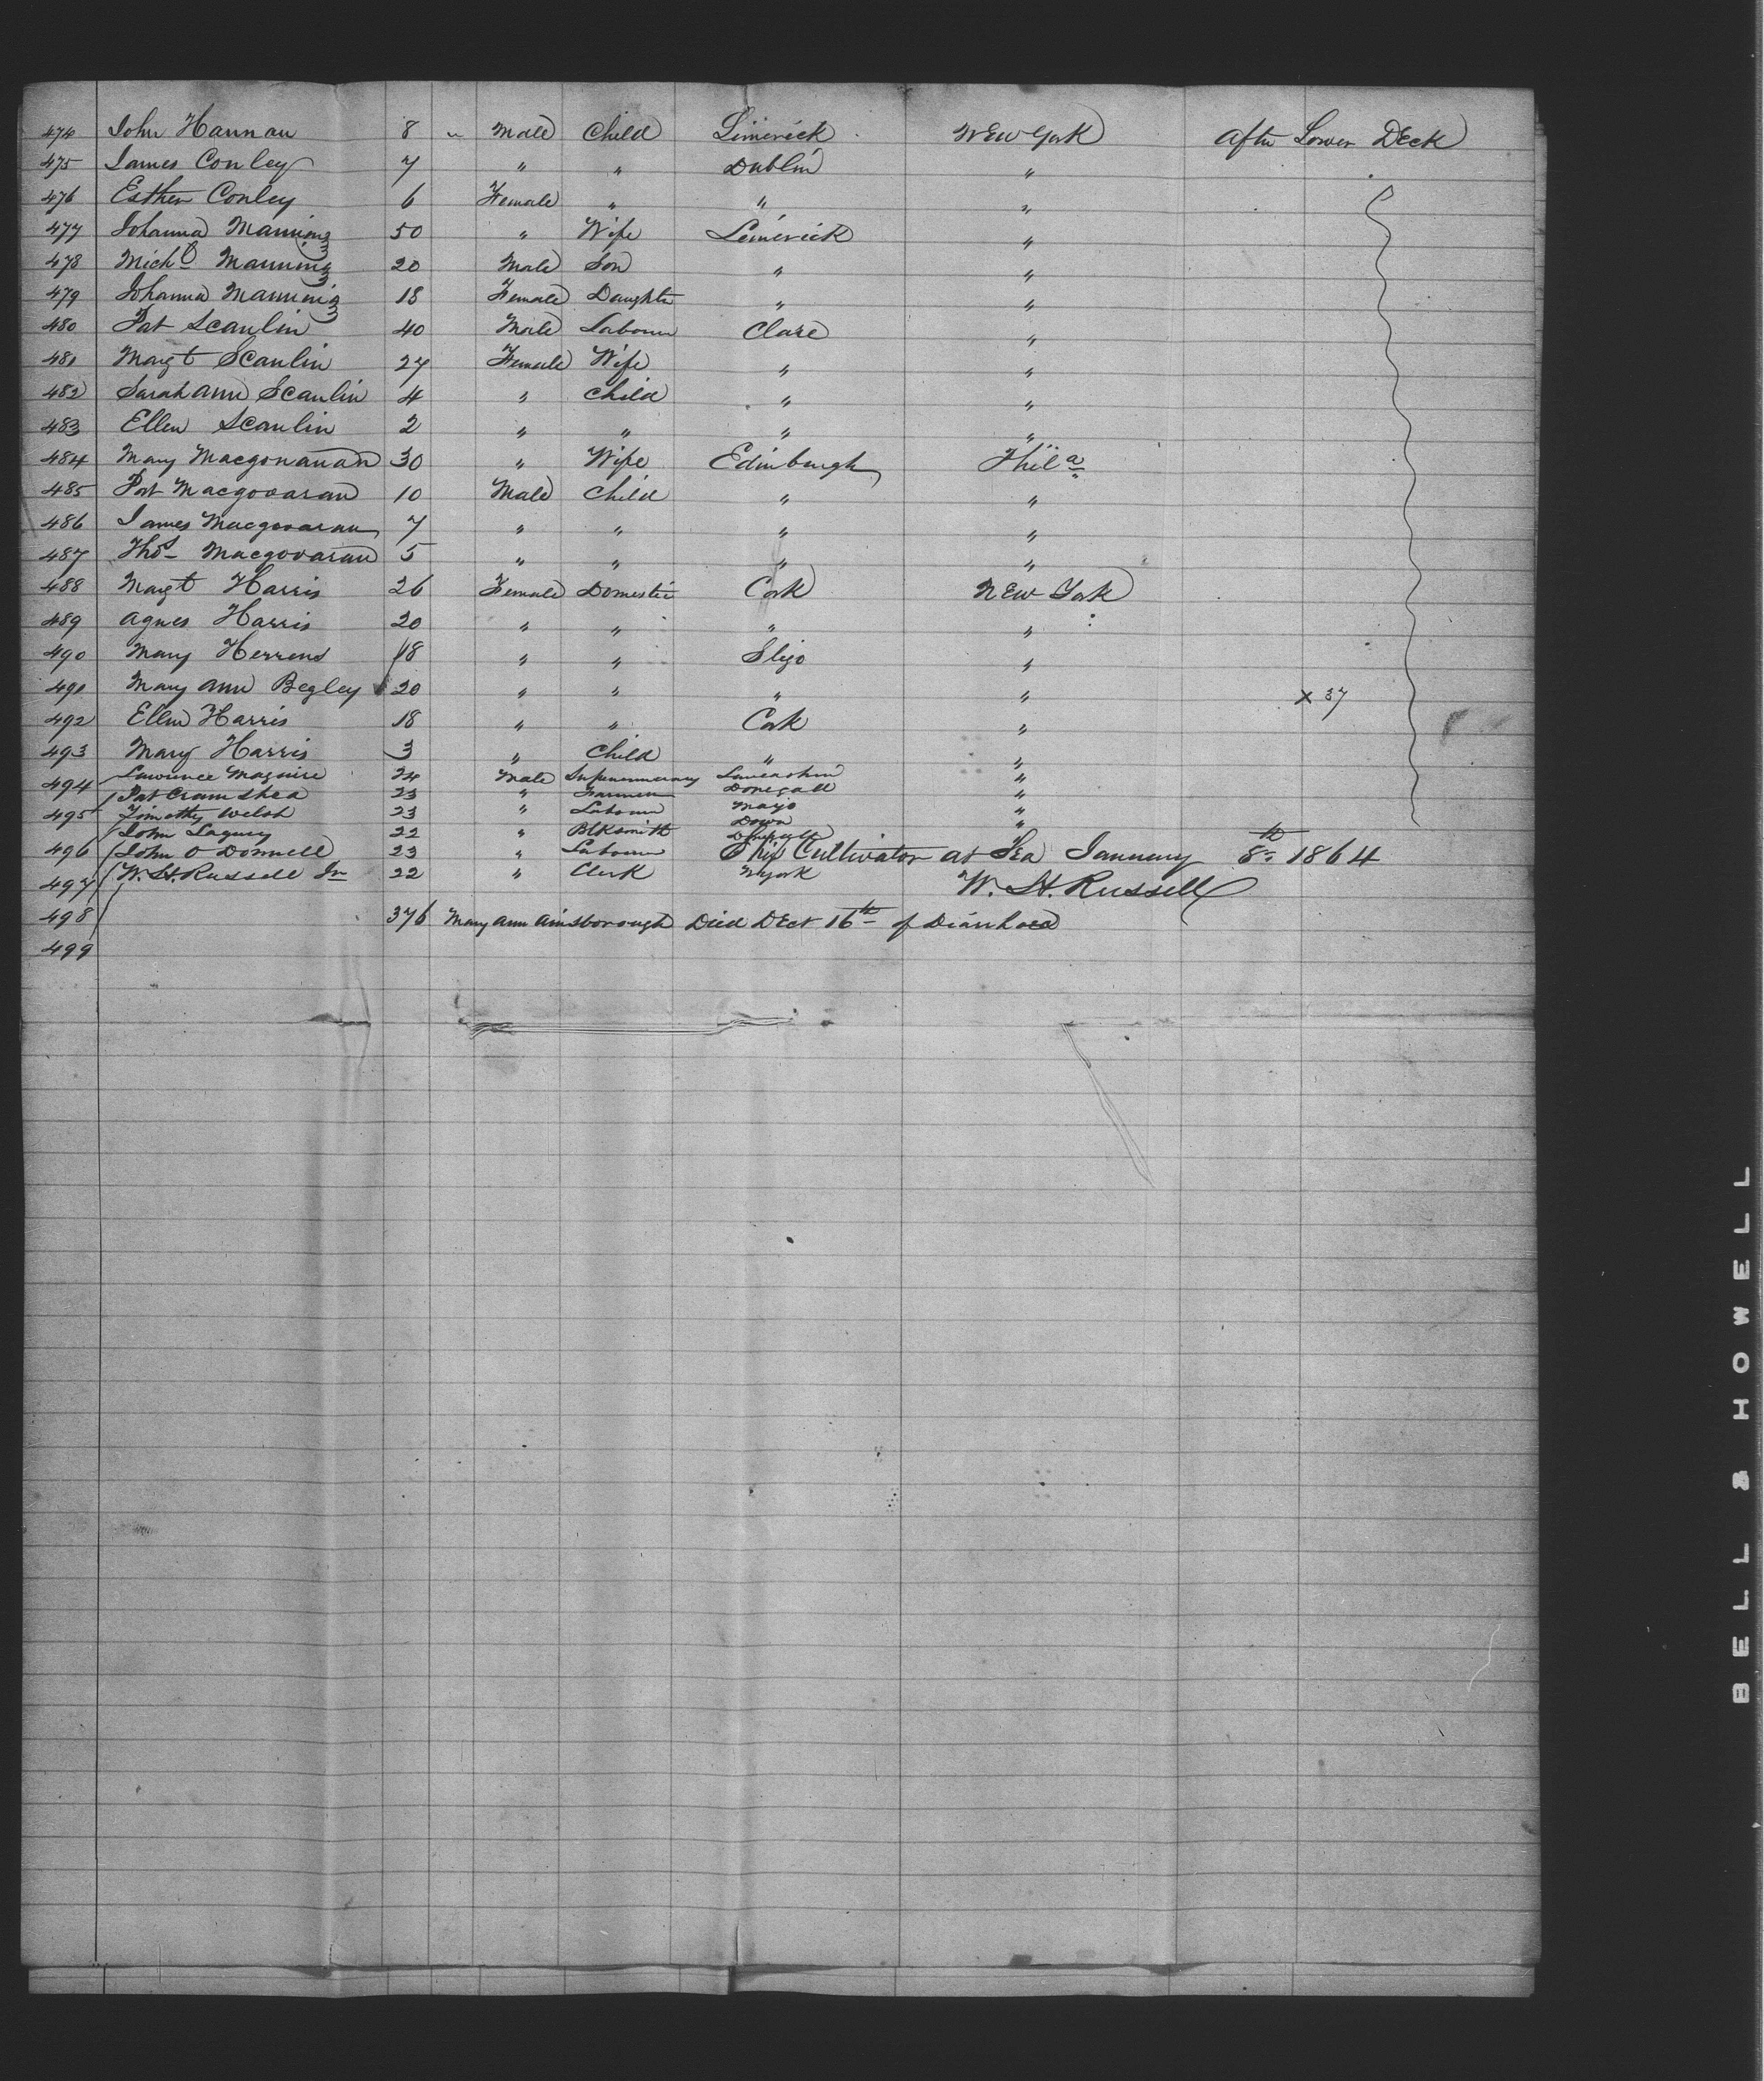 474 John Hannan 8 " Male Child Limerick New York After Lower Deck
475 James Conley 7 " " Dublin "
476 Esther Conley 6 Female " " "
477 Johanna Manning 50 " Wife Limerick "
478 Michl Manning 20 Male Son " "
479 Johanna Manning 18 Female Daughter " "
480 Pat Scanlin 40 Male Labourer Clare "
481 Margt Scanlin 27 Female Wife " "
482 Sarah Ann Scanlin 4 " Child " "
483 Ellen Scanlin 2 " " " "
484 Mary Macgonanan 30 " Wife Edinburgh Phila
485 Pat Macgovaran 10 Male Child " "
486 James Macgovaran 7 " " " "
487 Thos Macgovaran 5 " " " "
488 Margt Harris 26 Female Domestic Cork New York
489 Agnes Harris 20 " " " "
490 Mary Herrens 18 " " Sligo "
491 Mary Ann Begley 20 " " " " x 37
492 Ellen Harris 18 " " Cork "
493 Mary Harris 3 " Child " "
494 Lawrence Maguire 24 Male Supernumerary Lancashire "
Pat Cramshea 23 " Farmer Donegall "
495 Timothy Welsh 23 " Labourer Mayo "
John Laguey 22 " Blksmith Down "
496 John O Donnell 23 " Labourer Ship Cultivator at Sea January 8th 1864
497 W. H. Russell Jr 22 " Clerk NYork W. H. Russell
498 376 Mary Ann Ainsborough Died Dect 16th of Diarrhoea
499
BELL & HOWELL